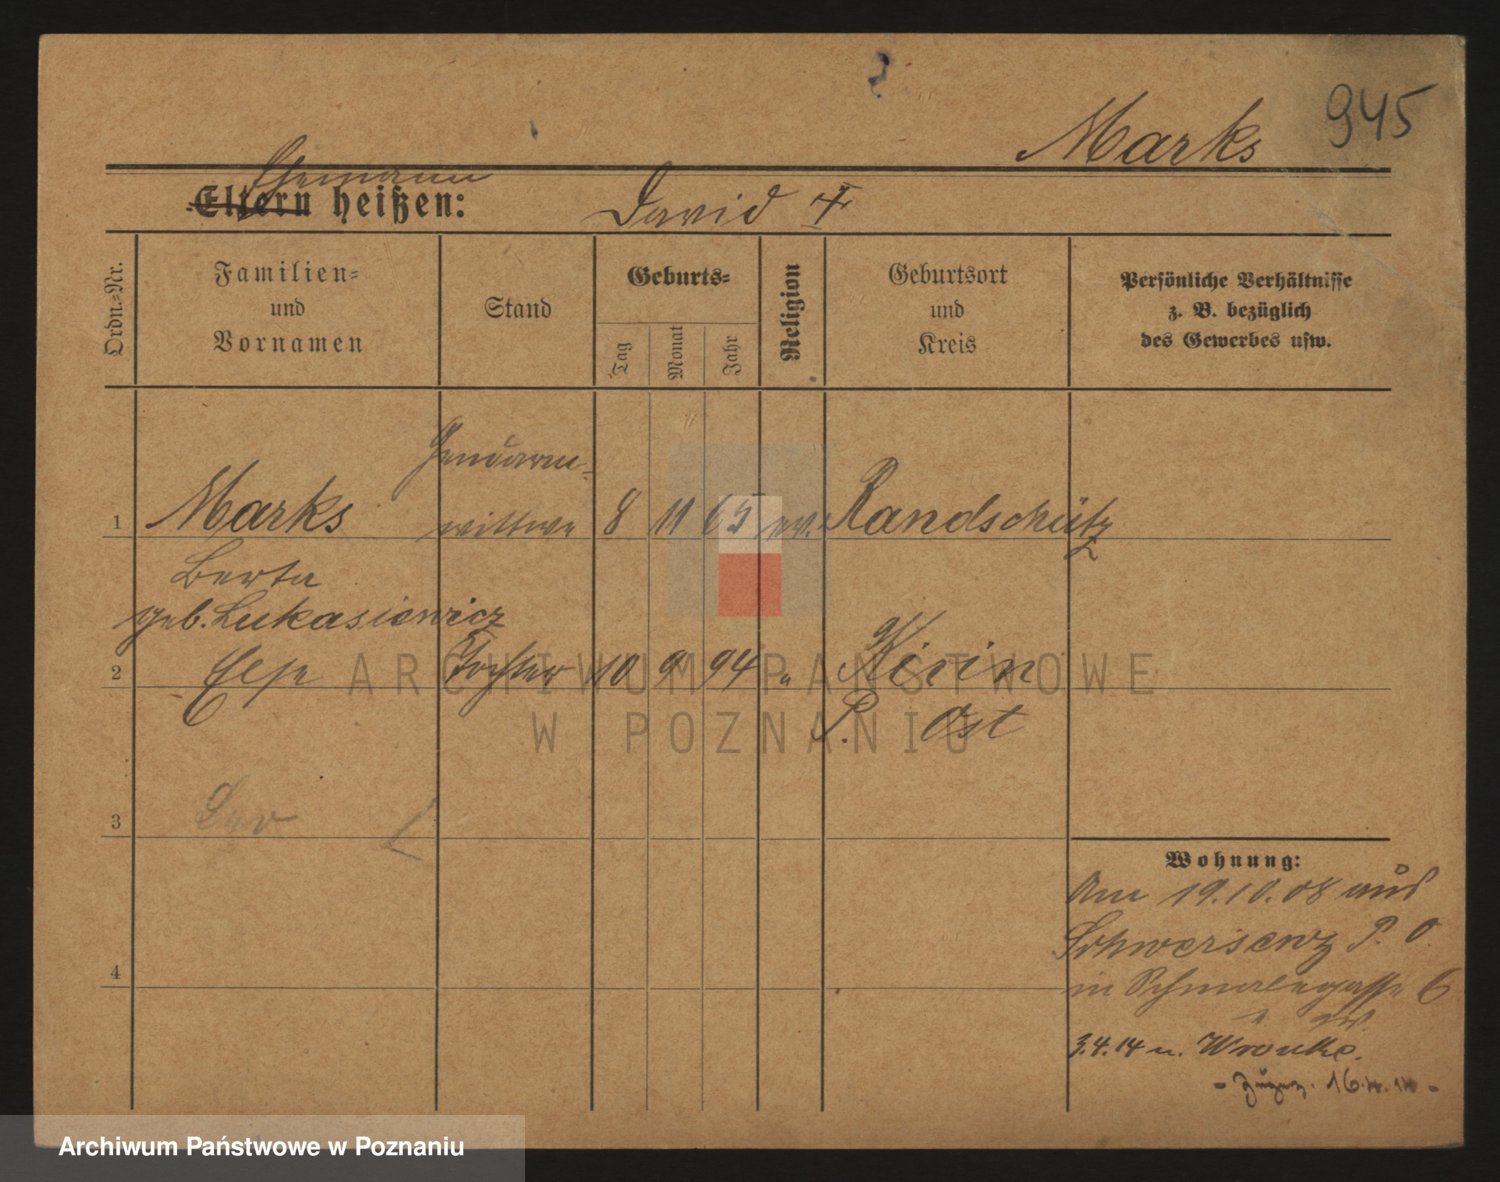 945
Marks
Ehemann
Eltern heißen: David †
Ordn.-Nr.
Familien-
und
Vornamen
Stand
Geburts-
Tag
Monat
Jahr
Religion
Geburtsort
und
Kreis
Persönliche Verhältnisse
z. B. bezüglich
des Gewerbes usw.
Gendarm-
1 Marks wittwe 8 11 65 ev. Randschütz
Berta
geb. Lukasiewicz
2 Else Tochter 10 9 94 " Kicin
P. Ost
3
4
Wohnung:
Am 19.10.08 aus
Schwersenz P. O.
in Schmalegasse 6
3.4.14 n. Wronke.
16.4.14 -
ARCHIWUM PAŃSTWOWE
W POZNANIU
Archiwum Państwowe w Poznaniu